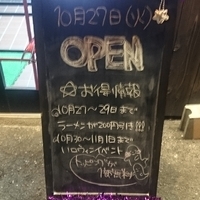 10月27日(火)
OPEN
☆お得情報
10月27~29日まで
ラーメンが200円引き!!!
10月30~11月1日まで
ハロウィンイベント
トッピング